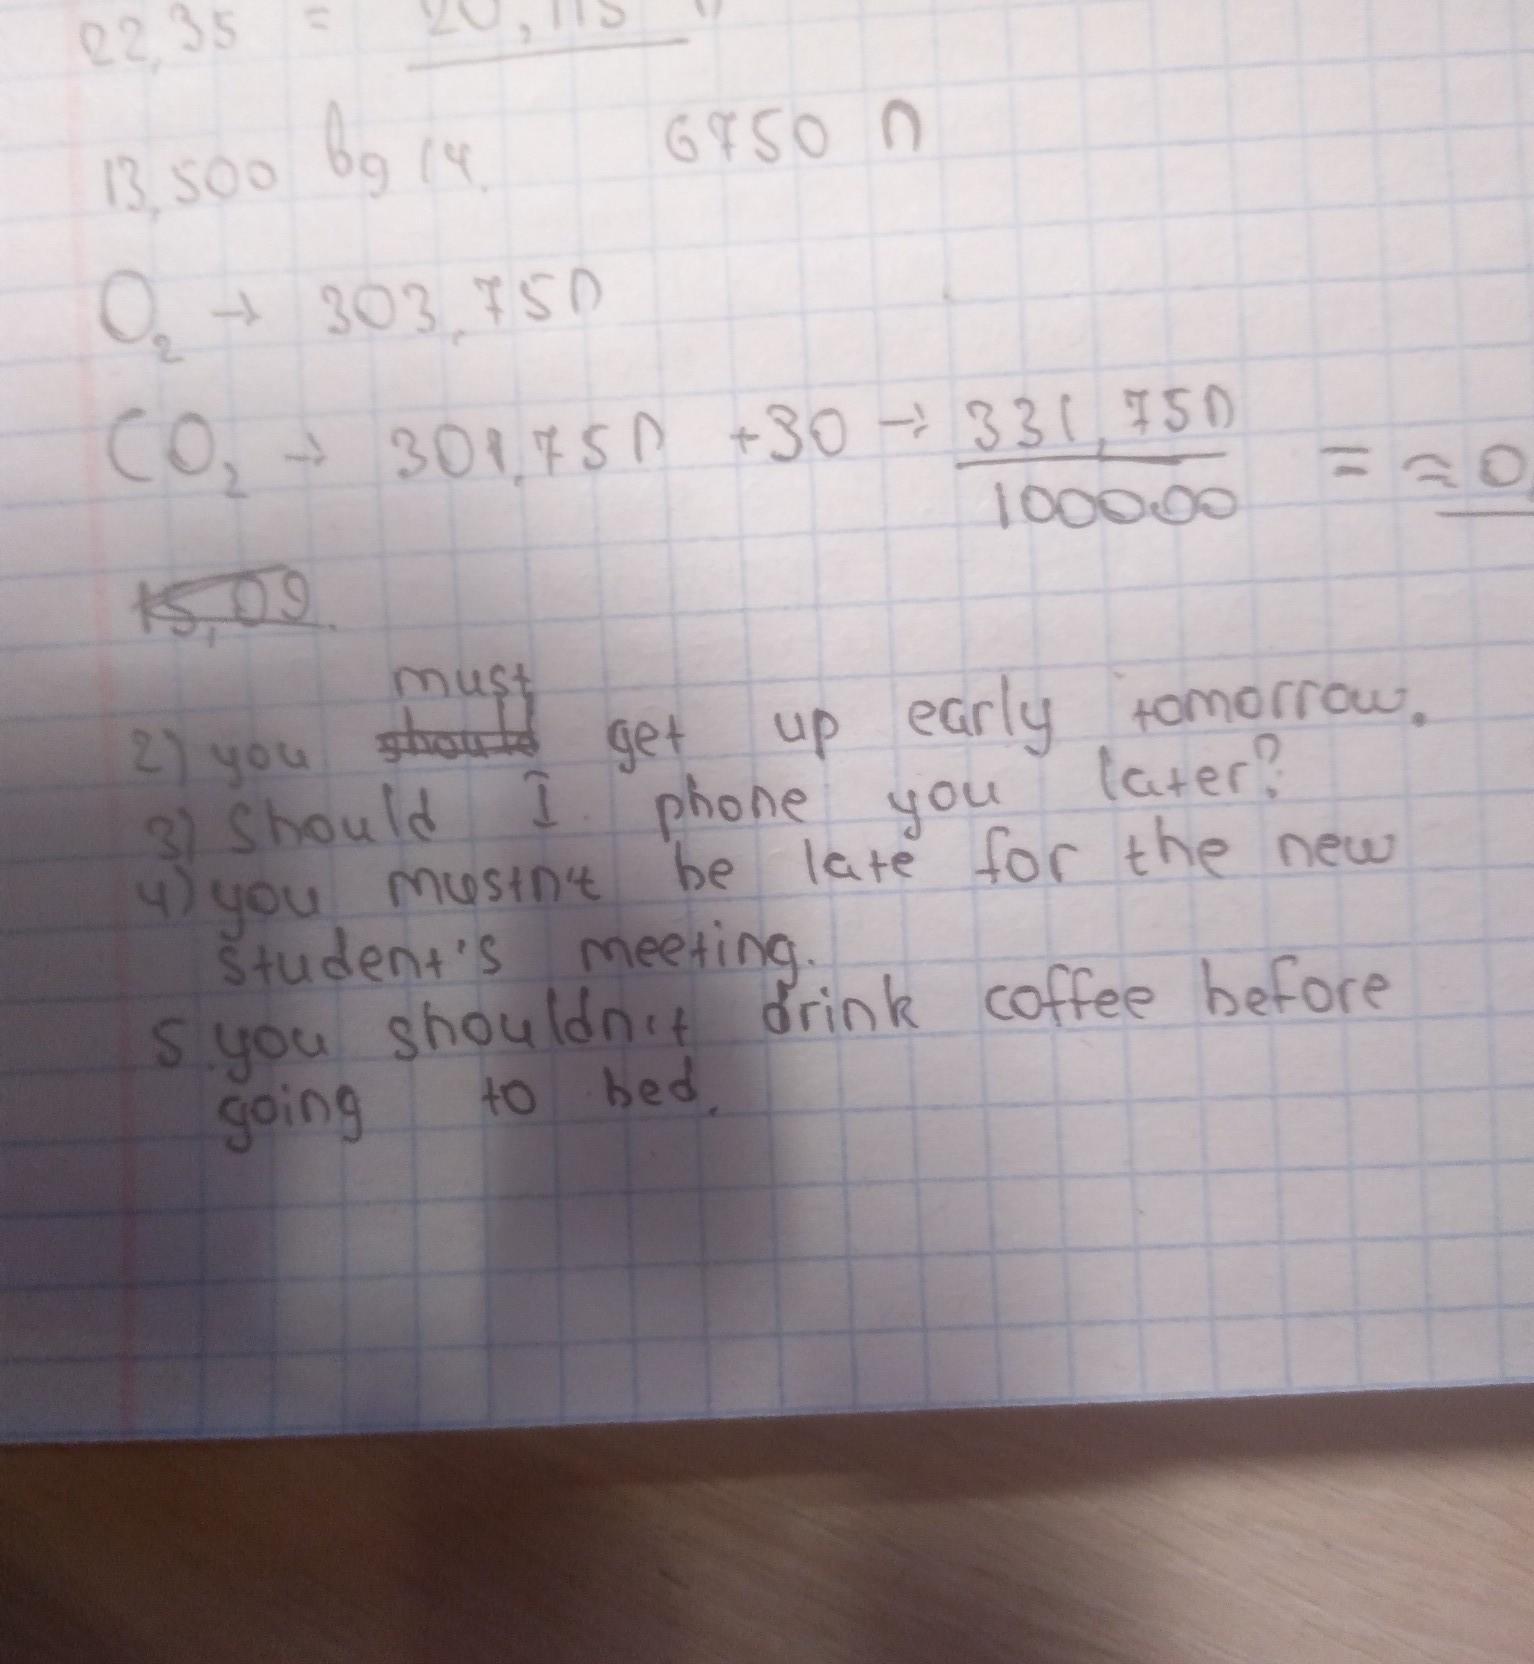 22,35 = 20,115 л
13,500 вд 1ч. 6750 л
O₂ → 303,75л
CO₂ → 301,75л +30 → 331,75л / 100000 = ≈0,
15,09.
must
2) you should get up early tomorrow.
3) Should I phone you later?
4) you mustn't be late for the new
student's meeting.
5. you shouldn't drink coffee before
going to bed.